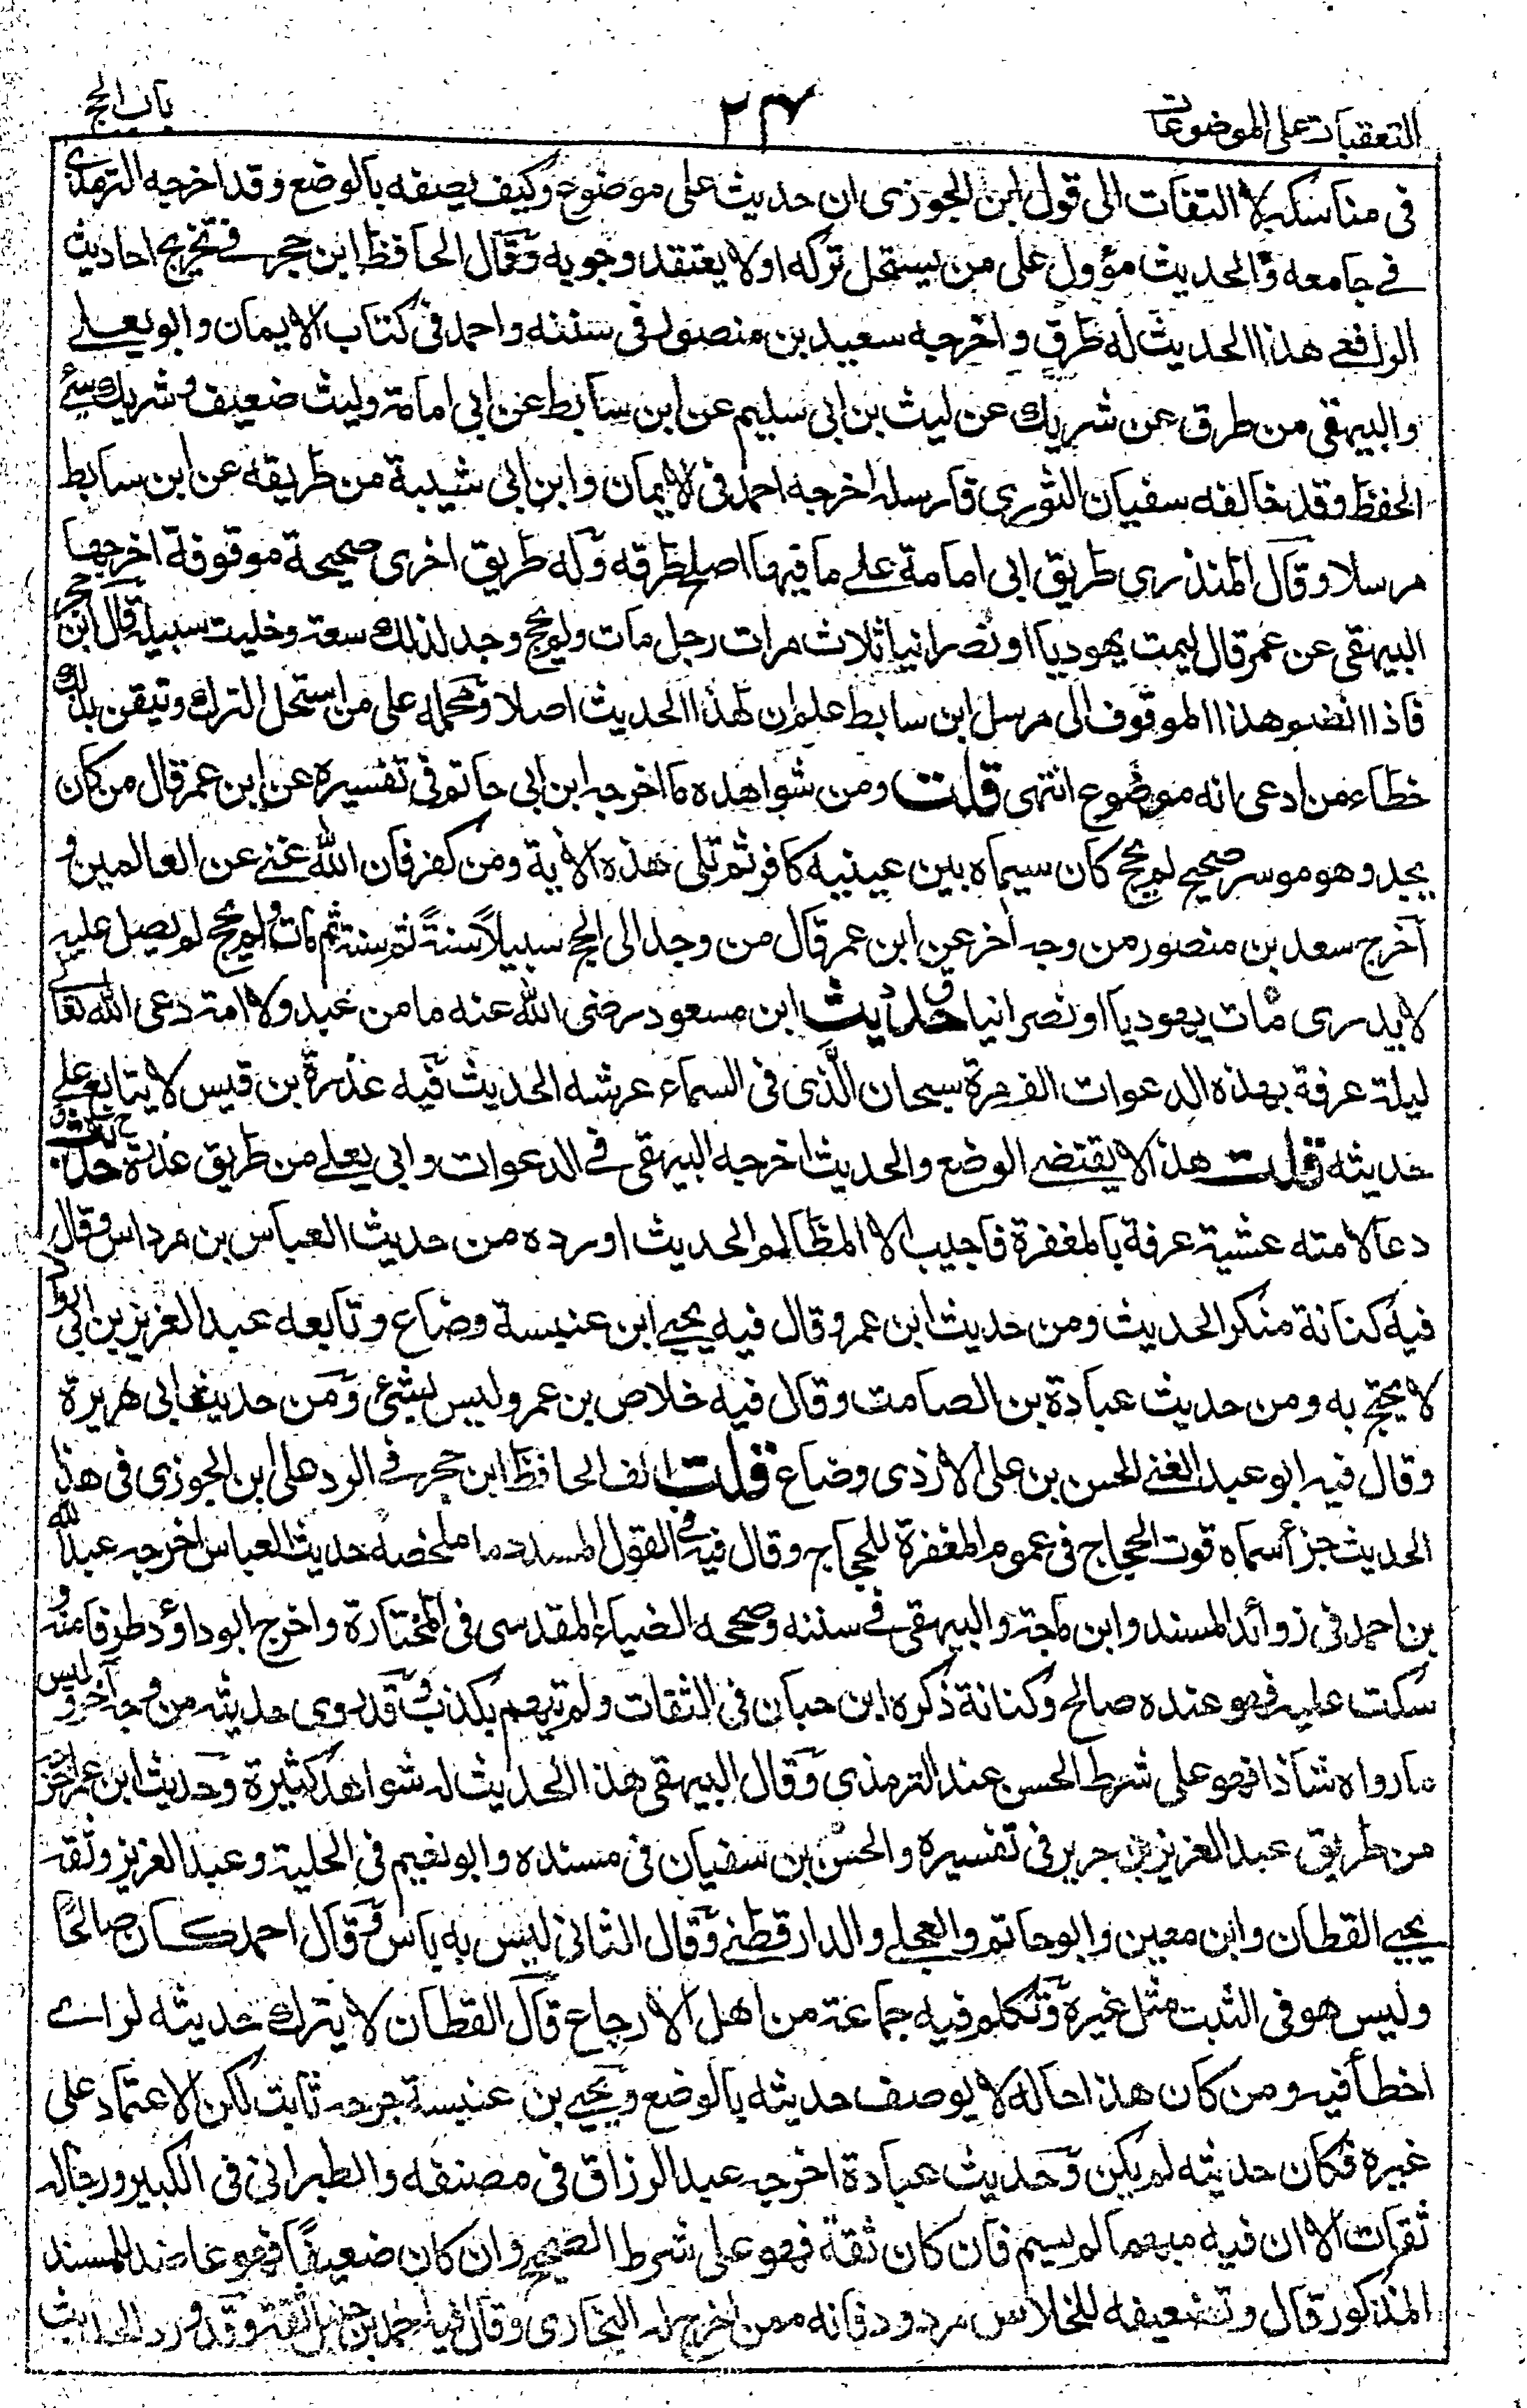 التعقبات على الموضوعات
۲۴
باب الحج
فى مناسكه لا التفات الى قول ابن الجوزى ان حديث على موضوع وكيف يصفه بالوضع وقد اخرجه الترمذى
فے جامعه والحديث مؤول على من يستحل تركه او لا يعتقد وجوبه وقال الحافظ ابن حجر فے تخريج احاديث
الرافعے هذا الحديث له طرق واخرجه سعيد بن منصور فى سننه واحمد فى كتاب الايمان وابو يعلے
والبيهقى من طرق عن شريك عن ليث بن ابى سليم عن ابن سابط عن ابى امامة وليث ضعيف وشريك سئ
الحفظ وقد خالفه سفيان الثورى فارسله اخرجه احمد فى الايمان وابن ابى شيبة من طريقه عن ابن سابط
مرسلا وقال المنذرى طريق ابى امامة علے ما فيها اصلح طرقه وله طريق اخرى صحيحة موقوفة اخرجها
البيهقى عن عمر قال ليمت يهوديا او نصرانيا ثلاث مرات رجل مات ولم يحج وجد لذلك سعة وخليت سبيله قال ابن حجر
فاذا انضم هذا الموقوف الى مرسل ابن سابط علم ان لهذا الحديث اصلا ومحمله على من استحل الترك وتيقن بذلك
خطاء من ادعى انه موضوع انتهى قلت ومن شواهده ما اخرجه ابن ابى حاتم فى تفسيره عن ابن عمر قال من كان
يجد وهو موسر صحيح لم يحج كان سيماه بين عينيه كافر ثم تلى هذه الاية ومن كفر فان الله غنے عن العالمين و
اخرج سعد بن منصور من وجه اخر عن ابن عمر قال من وجد الى الحج سبيلاً سنةً ثم سنة ثم مات ولم يحج لم يصل عليه
لا يدرى مات يهوديا او نصرانيا حديث ابن مسعود رضى الله عنه ما من عبد ولا امة دعى الله تعالے
ليلة عرفة بهذه الدعوات الف مرة سبحان الذى فى السماء عرشه الحديث فيه عذرة بن قيس لا يتابع علے
حديثه قلت هذا لا يقتضے الوضع والحديث اخرجه البيهقى فے الدعوات وابى يعلے من طريق عذرة حديث
دعا لامته عشية عرفة بالمغفرة فاجيب الا المظالم الحديث اورده من حديث العباس بن مرداس وقال
فيه كنانة منكر الحديث ومن حديث ابن عمر وقال فيه يحيے ابن عنبسة وضاع وتابعه عبد العزيز بن ابى رواد
لا يحتج به ومن حديث عبادة بن الصامت وقال فيه خلاص بن عمر وليس بشئ ومن حديث ابى هريرة
وقال فيه ابو عبد الغنے الحسن بن على الازدى وضاع قلت الف الحافظ ابن حجر فے الرد على ابن الجوزى فى هذا
الحديث جزأ سماه قوت الحجاج فى عموم المغفرة للحجاج وقال فيه وفے القول المسدد ما ملخصه حديث العباس اخرجه عبد الله
بن احمد فى زوائد المسند وابن ماجة والبيهقى فے سننه وصححه الضياء المقدسى فى المختارة واخرج ابو داؤد طرفا منه و
سكت عليه فهو عنده صالح وكنانة ذكره ابن حبان فى الثقات ولم يتهم بكذب وقد روى حديثه من وجه آخر وليس
ما رواه شاذا فهو على شرط الحسن عند الترمذى وقال البيهقى هذا الحديث له شواهد كثيرة وحديث ابن عمر اخرجه
من طريق عبد العزيز بن جرير فى تفسيره والحسن بن سفيان فى مسنده وابو نعيم فى الحلية وعبد العزيز وثقه
يحيے القطان وابن معين وابو حاتم والعجلے والدارقطنے وقال الثانى ليس به باس وقال احمد كان صالحًا
وليس هو فى الثبت مثل غيره وتكلم فيه جماعة من اهل الارجاء قال القطان لا يترك حديثه لراے
اخطأ فيه ومن كان هذا حاله لا يوصف حديثه بالوضع ويحيے بن عنبسة جرحه ثابت لكن الاعتماد على
غيره فكان حديثه لم يكن وحديث عبادة اخرجه عبد الرزاق فى مصنفه والطبرانى فى الكبير ورجاله
ثقات الا ان فيه مبهما لم يسم فان كان ثقة فهو على شرط الصحيح وان كان ضعيفًا فهو عاضد للمسند
المذكور قال وتضعيفه للخلاس مردود فانه ممن اخرج له البخارى وقال فيه احمد بن حنبل ثقة وقد ورد الحديث